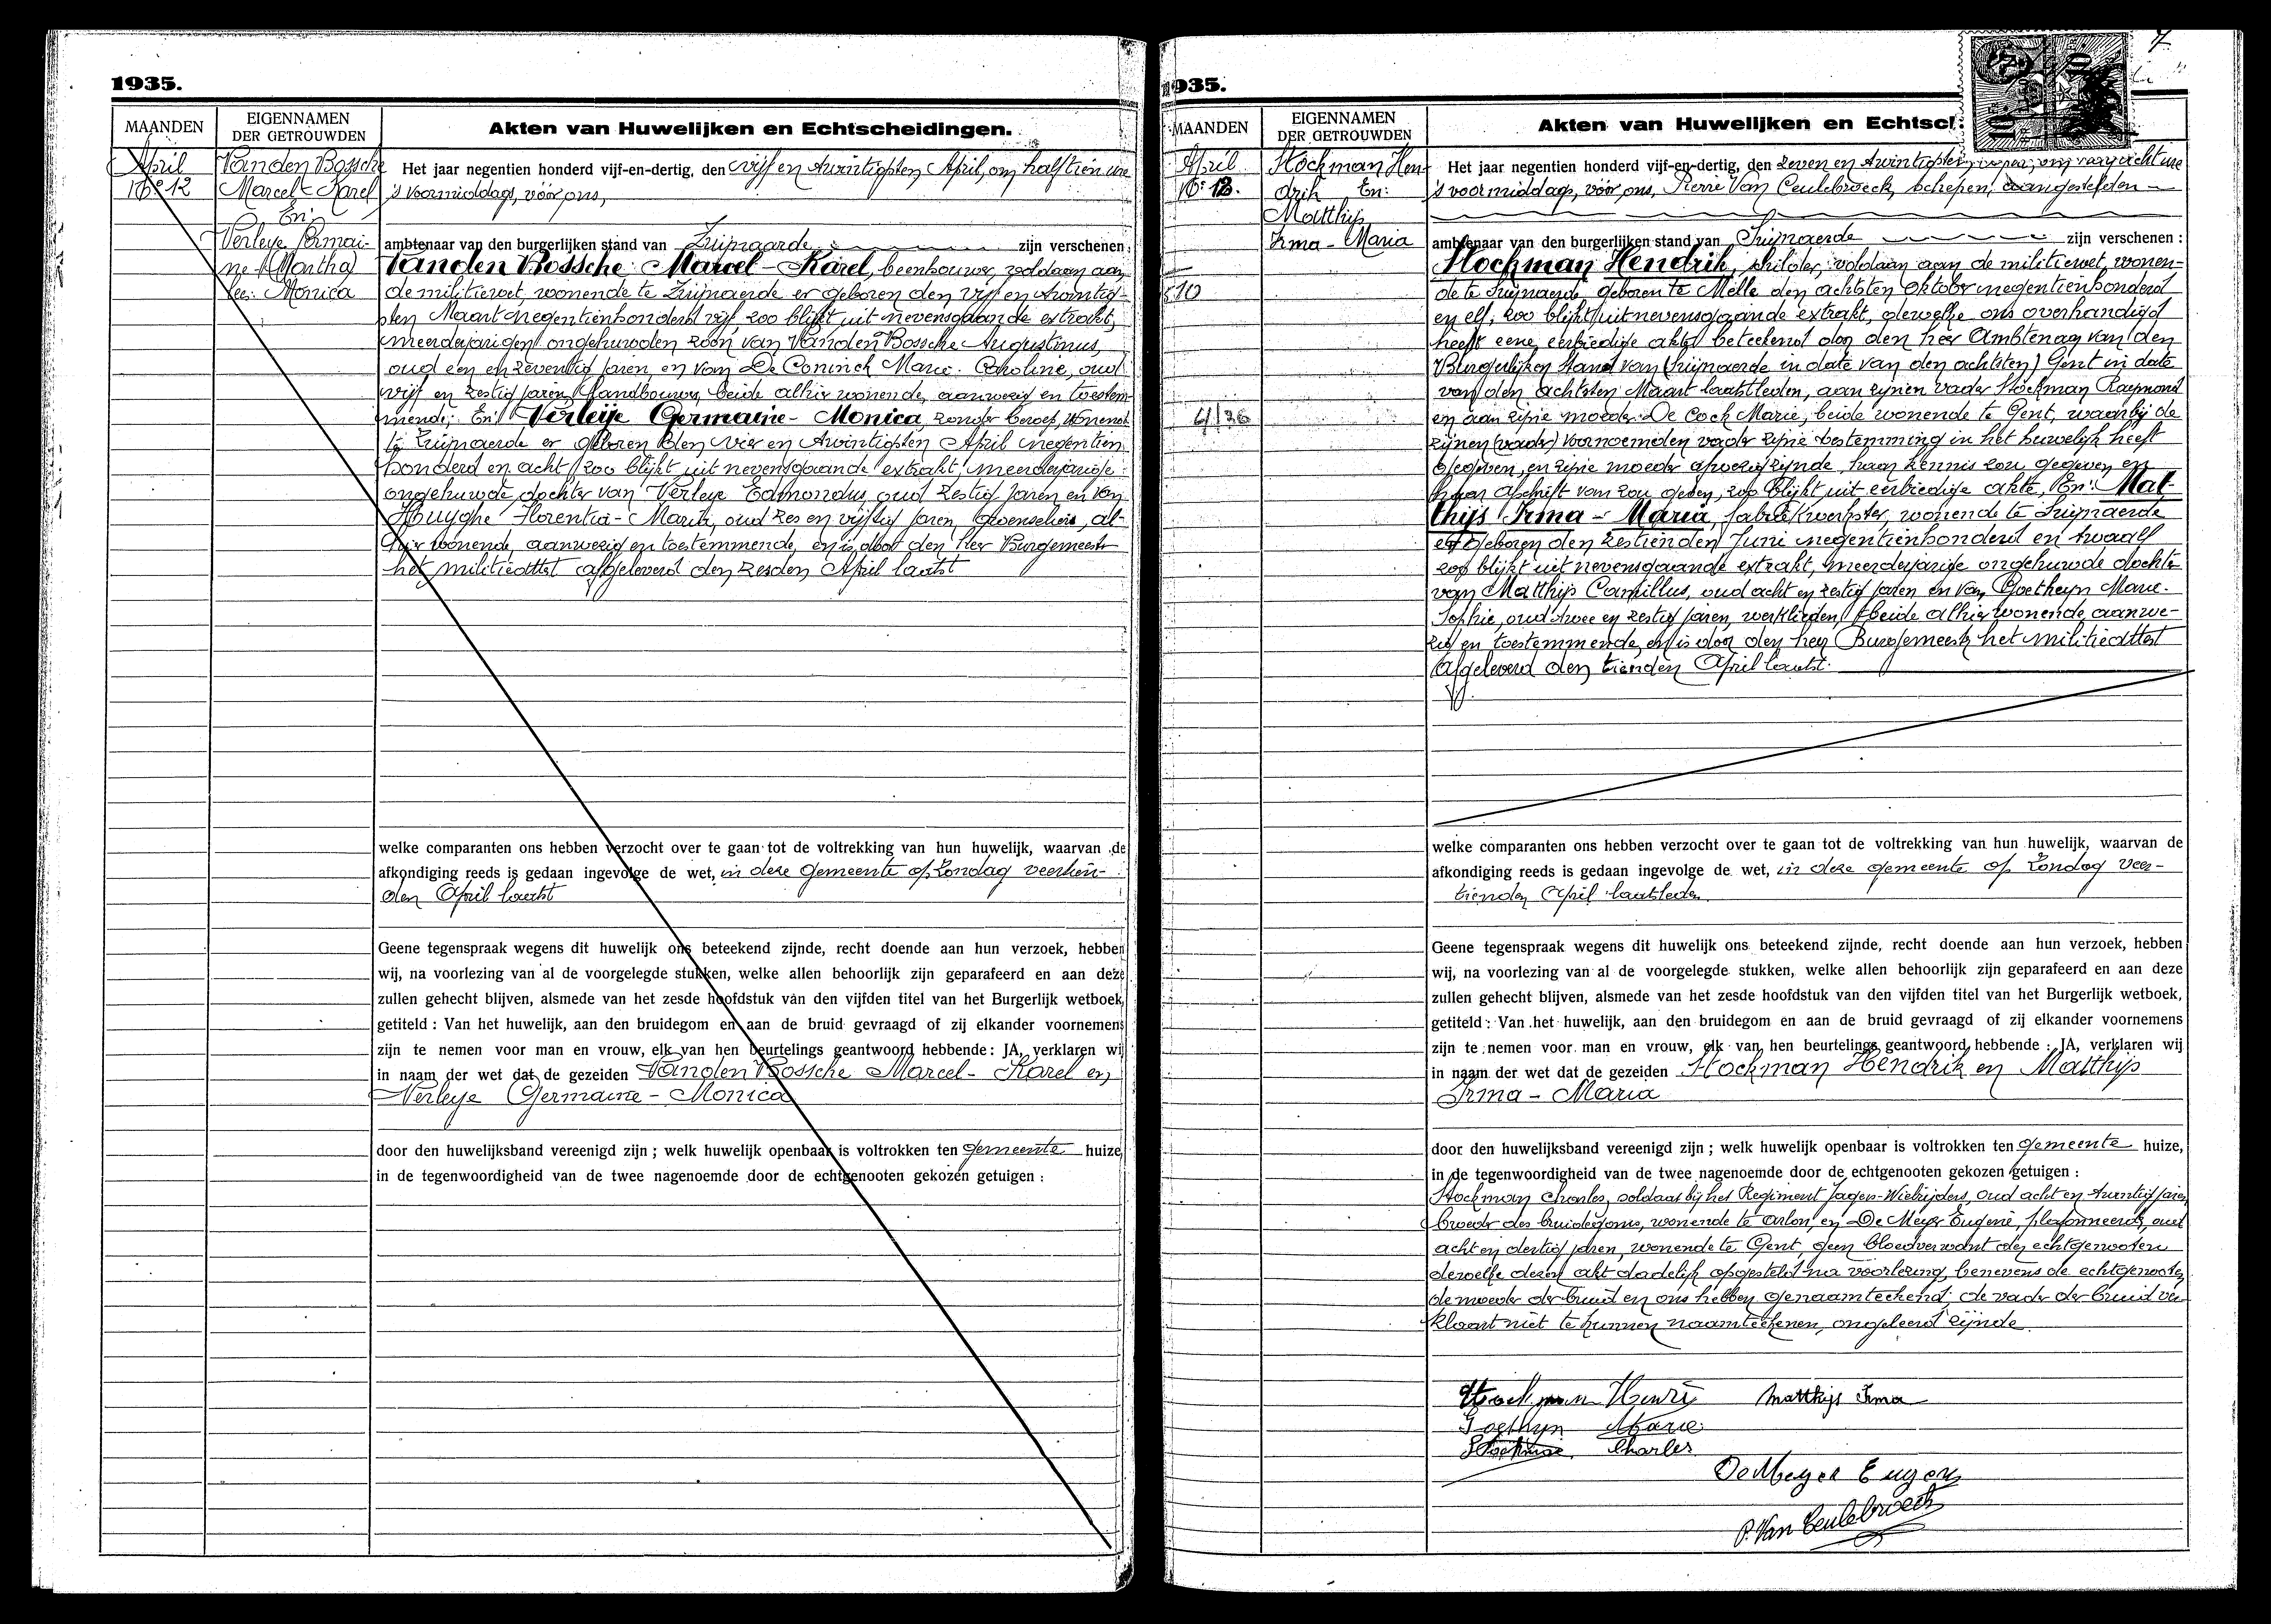 1935.
MAANDEN
EIGENNAMEN
DER GETROUWDEN
Akten van Huwelijken en Echtscheidingen.
April
Nº 12
Vanden Bossche
Marcel-Karel
En:
Verleye Germai-
ne (Martha)
lees: Monica
Het jaar negentien honderd vijf-en-dertig, den vijf en twintigsten April, om half tien ure
's voormiddags, vóór ons,
ambtenaar van den burgerlijken stand van Zwijnaarde zijn verschenen:
Vanden Bossche Marcel-Karel, beenhouwer, voldaan aan
de militiewet, wonende te Zwijnaerde er geboren den vijf en twintig-
sten Maart negentienhonderd vijf, zoo blijkt uit nevensgaande extrakt,
meerderjarigen ongehuwden zoon van Vanden Bossche Augustinus,
oud een en zeventig jaren, en van De Coninck Marie-Caroline, oud
vijf en zestig jaren, landbouwers, beide alhier wonende, aanwezig en toestem-
mende; En: Verleije Germaine-Monica, zonder beroep, wonende
te Zwijnaerde er geboren den vier en twintigsten April negentien
honderd en acht, zoo blijkt uit nevensgaande extrakt, meerderjarige
ongehuwde dochter van Verleye Edmondus, oud zestig jaren en van
Huyghe Florentia-Maria, oud zes en vijftig jaren, al-
hier wonende, aanwezig en toestemmende, en is door den Heer Burgemeester
het militieattest afgeleverd den zesden April laatst
welke comparanten ons hebben verzocht over te gaan tot de voltrekking van hun huwelijk, waarvan de
afkondiging reeds is gedaan ingevolge de wet, in deze gemeente op Zondag veertien-
den April laatst
Geene tegenspraak wegens dit huwelijk ons beteekend zijnde, recht doende aan hun verzoek, hebben
wij, na voorlezing van al de voorgelegde stukken, welke allen behoorlijk zijn geparafeerd en aan deze
zullen gehecht blijven, alsmede van het zesde hoofdstuk van den vijfden titel van het Burgerlijk wetboek,
getiteld: Van het huwelijk, aan den bruidegom en aan de bruid gevraagd of zij elkander voornemens
zijn te nemen voor man en vrouw, elk van hen beurtelings geantwoord hebbende: JA, verklaren wij
in naam der wet dat de gezeiden Vanden Bossche Marcel-Karel en
Verleye Germaine-Monica
door den huwelijksband vereenigd zijn; welk huwelijk openbaar is voltrokken ten gemeente huize,
in de tegenwoordigheid van de twee nagenoemde door de echtgenooten gekozen getuigen:
1935.
7
MAANDEN
EIGENNAMEN
DER GETROUWDEN
Akten van Huwelijken en Echtsc
April
Nº 12.
10
4/36
Stockman Hen-
drik En:
Matthijs
Irma-Maria
Het jaar negentien honderd vijf-en-dertig, den zeven en twintigsten
's voormiddags, vóór ons, Pierre Van Ceulebroeck, schepen, aangestelden
ambtenaar van den burgerlijken stand van Zwijnaerde zijn verschenen:
Stockman Hendrik, schilder, voldaan aan de militiewet, wonen-
de te Zwijnaerde geboren te Melle den achtsten Oktober negentienhonderd
en elf, zoo blijkt uit nevensgaande extrakt, dewelke ons overhandigd
heeft eene eerbiedige akte beteekend door den heer Ambtenaar van den
Burgerlijken Stand van (Zwijnaerde in date van den achtsten) Gent in date
van den achtsten Maart laatstleden, aan zijnen vader Stockman Raymond
en aan zijne moeder De Cock Marie, beide wonende te Gent, waarbij de
zijnen (vader) voornoemden vader zijne toestemming in het huwelijk heeft
gegeven, en zijne moeder afwezig zijnde, haar kennis zou gegeven en
haar afschrift van zou geven, zoo blijkt uit eerbiedige akte, En: Mat-
thijs Irma-Maria, fabriekwerkster, wonende te Zwijnaerde
er geboren den zestienden Juni negentienhonderd en twaalf
zoo blijkt uit nevensgaande extrakt, meerderjarige ongehuwde dochter
van Matthijs Camillus, oud acht en zestig jaren en van Goetheyn Marie-
Sophie, oud twee en zestig jaren, werklieden, beide alhier wonende, aanwe-
zig en toestemmende, en is door den heer Burgemeester het militieattest
afgeleverd den tienden April laatst.
welke comparanten ons hebben verzocht over te gaan tot de voltrekking van hun huwelijk, waarvan de
afkondiging reeds is gedaan ingevolge de wet, in deze gemeente op Zondag veer-
tienden April laatstleden
Geene tegenspraak wegens dit huwelijk ons beteekend zijnde, recht doende aan hun verzoek, hebben
wij, na voorlezing van al de voorgelegde stukken, welke allen behoorlijk zijn geparafeerd en aan deze
zullen gehecht blijven, alsmede van het zesde hoofdstuk van den vijfden titel van het Burgerlijk wetboek,
getiteld: Van het huwelijk, aan den bruidegom en aan de bruid gevraagd of zij elkander voornemens
zijn te nemen voor man en vrouw, elk van hen beurtelings geantwoord hebbende: JA, verklaren wij
in naam der wet dat de gezeiden Stockman Hendrik en Matthijs
Irma-Maria
door den huwelijksband vereenigd zijn; welk huwelijk openbaar is voltrokken ten gemeente huize,
in de tegenwoordigheid van de twee nagenoemde door de echtgenooten gekozen getuigen:
Stockman Charles, soldaat bij het Regiment Jagers-Wielrijders, oud acht en twintig jaren,
broeder des bruidegoms, wonende te Arlon, en De Meyer Eugene, plafonneerder, oud
acht en dertig jaren, wonende te Gent, geen bloedverwant der echtgenooten
dewelke dezen akt dadelijk opgesteld na voorlezing, benevens de echtgenooten,
de moeder der bruid en ons hebben genaamteekend; de vader der bruid ver-
klaart niet te kunnen naamteekenen, ongeleerd zijnde
Stockman Henri Matthijs Irma
Goethyn Marie
Stockman Charles
De Meyer Eugen
P. Van Ceulebroeck